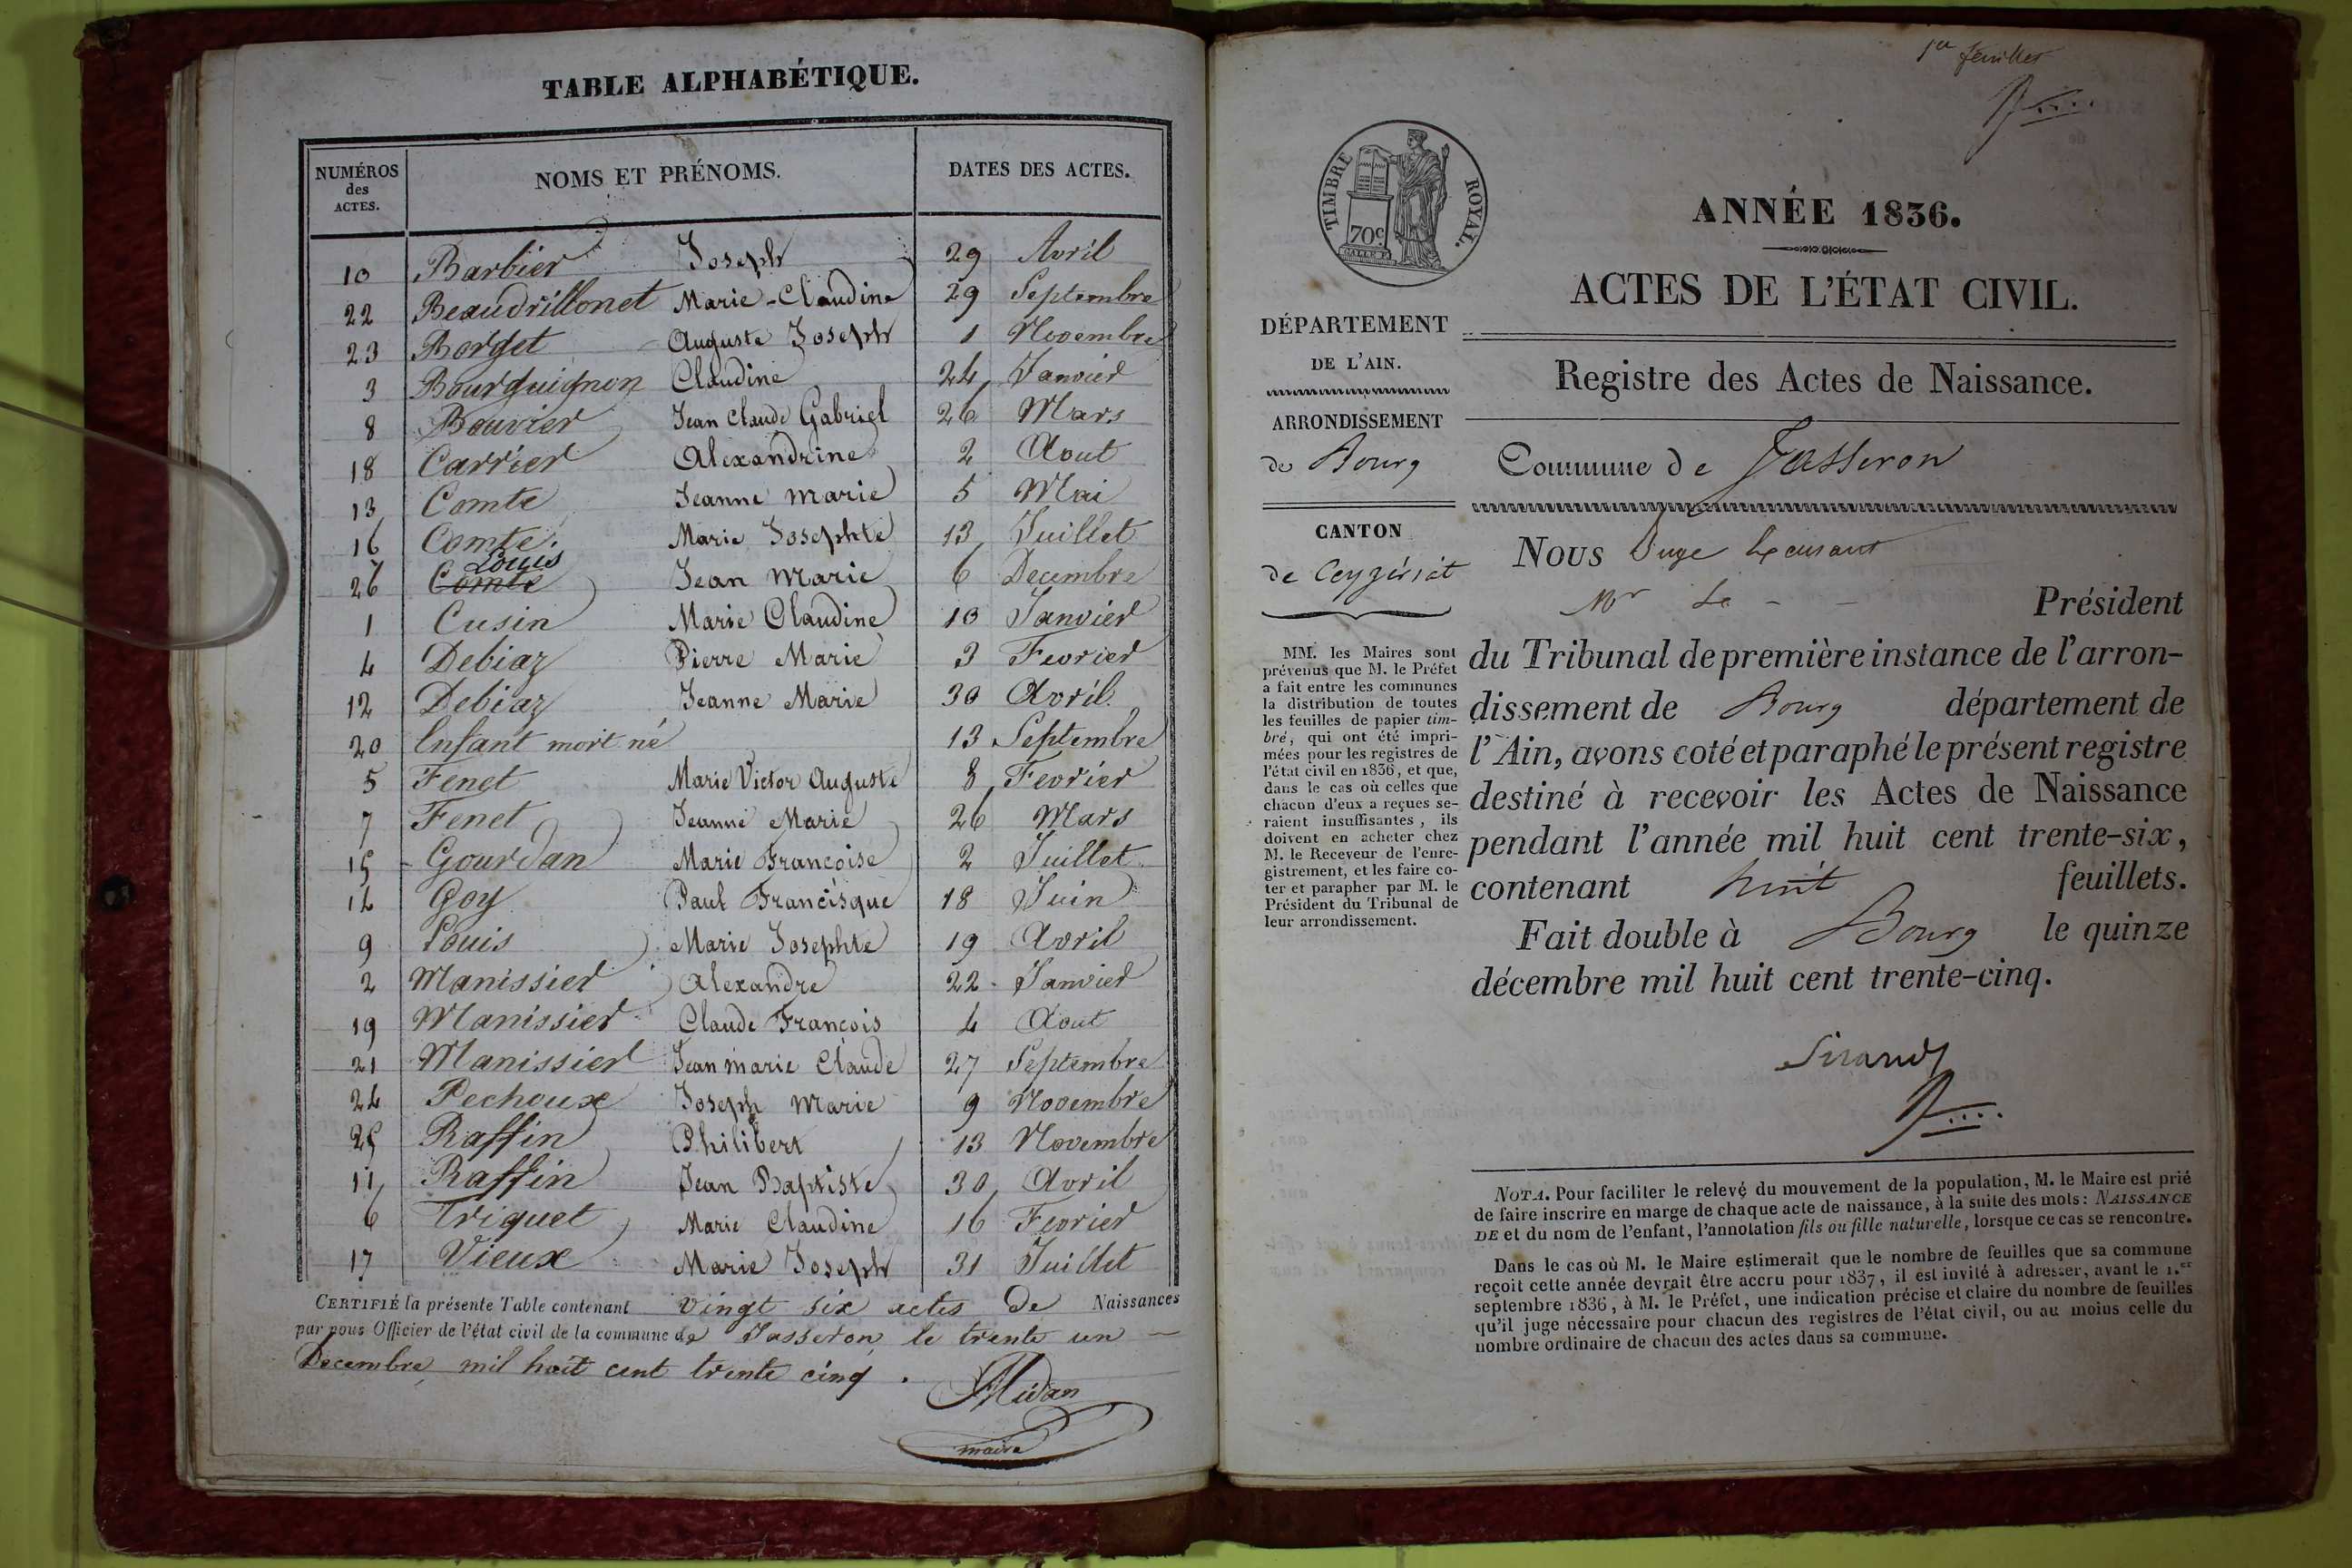 TABLE ALPHABÉTIQUE.
NUMÉROS
des
ACTES.
NOMS ET PRÉNOMS.
DATES DES ACTES.
10 Barbier Joseph 29 Avril
22 Beaudrillonet Marie-Claudine 29 Septembre
23 Borget Auguste Joseph 1 Novembre
3 Bourguignon Claudine 24 Janvier
8 Bouvier Jean Claude Gabriel 26 Mars
18 Carrier Alexandrine 2 Aout
13 Comte Jeanne marie 5 Mai
16 Comte Marie Josephte 13 Juillet
Louis
26 Comte Jean Marie 6 Decembre
1 Cusin Marie Claudine 10 Janvier
4 Debiaz Pierre Marie 3 Fevrier
12 Debiaz Jeanne Marie 30 Avril.
20 Enfant mort né 13 Septembre
5 Fenet Marie Victor Auguste 8 Fevrier
7 Fenet Jeanne Marie 26 Mars
15 Gourdan Marie Francoise 2 Juillet
14 Goy Paul Francisque 18 Juin
9 Louis Marie Josephte 19 Avril
2 Manissier Alexandre 22 Janvier
19 Manissier Claude Francois 4 Aout
21 Manissier Jean marie Claude 27 Septembre
24 Pechoux Joseph Marie 9 Novembre
25 Raffin Philibert 13 Novembre
11 Raffin Jean Baptiste 30 Avril
6 Triquet Marie Claudine 16 Fevrier
17 Vieux Marie Joseph 31 Juillet
CERTIFIÉ la présente Table contenant vingt six actes de Naissances
par nous Officier de l'état civil de la commune de Jasseron le trente un
Decembre mil huit cent trente cinq.
Midan
maire
1er feuillet
TIMBRE ROYAL.
70c
ANNÉE 1836.
ACTES DE L'ÉTAT CIVIL.
DÉPARTEMENT
DE L'AIN.
Registre des Actes de Naissance.
ARRONDISSEMENT
de Bourg
Commune de Jasseron
CANTON
de Ceyzériat
MM. les Maires sont
prévenus que M. le Préfet
a fait entre les communes
la distribution de toutes
les feuilles de papier tim-
bré, qui ont été impri-
mées pour les registres de
l'état civil en 1836, et que,
dans le cas où celles que
chacun d'eux a reçues se-
raient insuffisantes, ils
doivent en acheter chez
M. le Receveur de l'enre-
gistrement, et les faire co-
ter et parapher par M. le
Président du Tribunal de
leur arrondissement.
NOUS Juge
Mr Le - - Président
du Tribunal de première instance de l'arron-
dissement de Bourg département de
l'Ain, avons coté et paraphé le présent registre
destiné à recevoir les Actes de Naissance
pendant l'année mil huit cent trente-six,
contenant huit feuillets.
Fait double à Bourg le quinze
décembre mil huit cent trente-cinq.
Sirand
NOTA. Pour faciliter le relevé du mouvement de la population, M. le Maire est prié
de faire inscrire en marge de chaque acte de naissance, à la suite des mots: NAISSANCE
DE et du nom de l'enfant, l'annotation fils ou fille naturelle, lorsque ce cas se rencontre.
Dans le cas où M. le Maire estimerait que le nombre de feuilles que sa commune
reçoit cette année devrait être accru pour 1837, il est invité à adresser, avant le 1.er
septembre 1836, à M. le Préfet, une indication précise et claire du nombre de feuilles
qu'il juge nécessaire pour chacun des registres de l'état civil, ou au moins celle du
nombre ordinaire de chacun des actes dans sa commune.